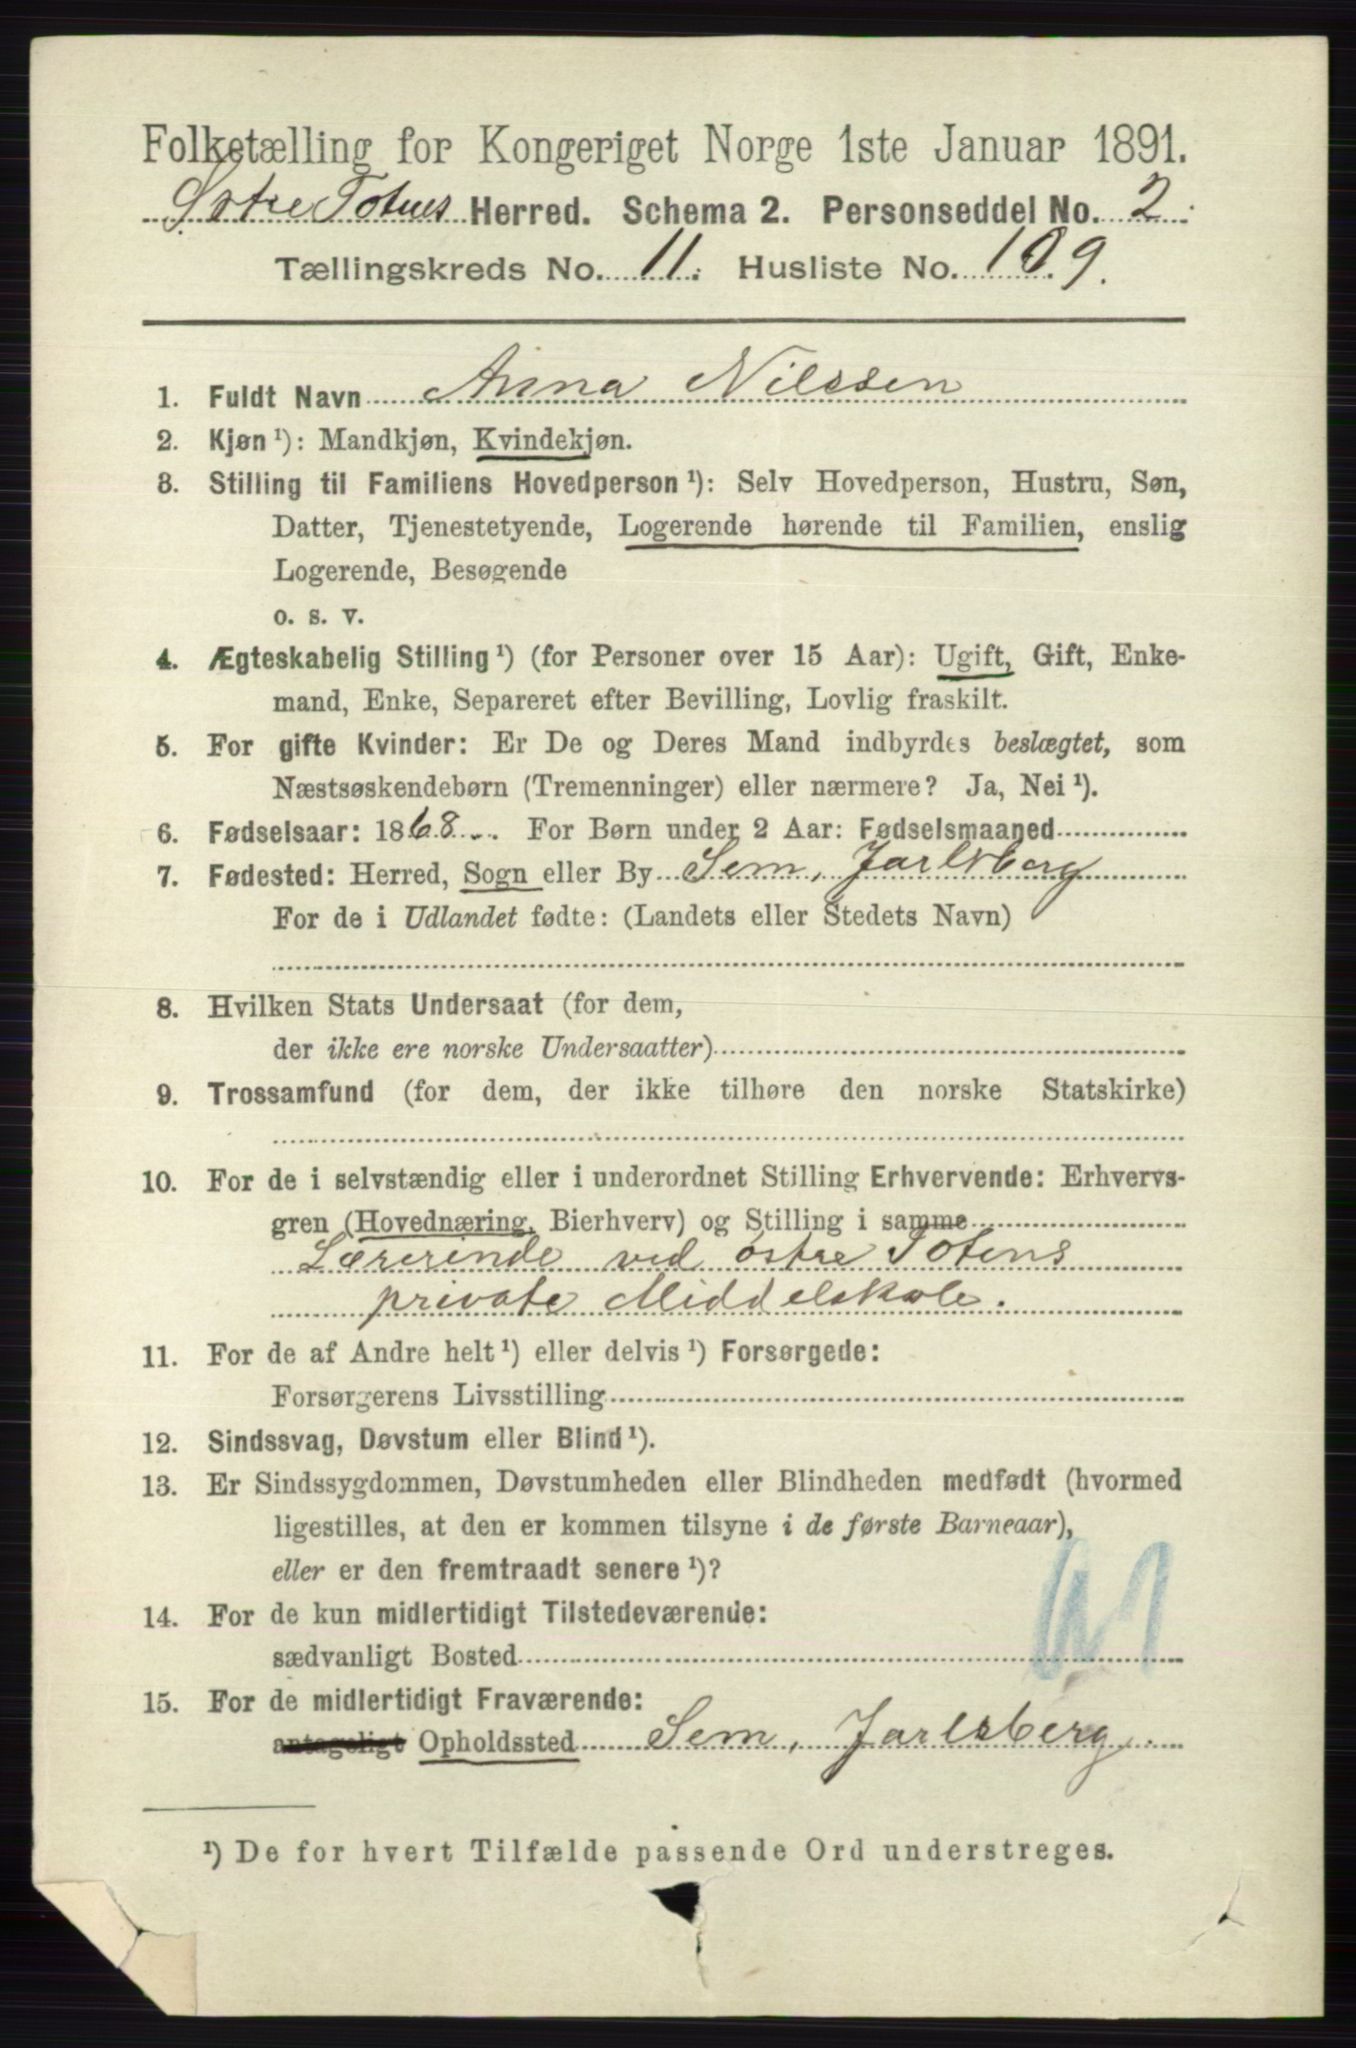 Folketælling for Kongeriget Norge 1ste Januar 1891.
Østre Totens Herred. Schema 2. Personseddel No. 2.
Tællingskreds No. 11. Husliste No. 109.
1. Fuldt Navn Anna Nilssen
2. Kjøn ¹): Mandkjøn, Kvindekjøn.
3. Stilling til Familiens Hovedperson ¹): Selv Hovedperson, Hustru, Søn,
Datter, Tjenestetyende, Logerende hørende til Familien, enslig
Logerende, Besøgende
o. s. v.
4. Ægteskabelig Stilling ¹) (for Personer over 15 Aar): Ugift, Gift, Enke-
mand, Enke, Separeret efter Bevilling, Lovlig fraskilt.
5. For gifte Kvinder: Er De og Deres Mand indbyrdes beslægtet, som
Næstsøskendebørn (Tremenninger) eller nærmere? Ja, Nei ¹).
6. Fødselsaar: 1868. For Børn under 2 Aar: Fødselsmaaned
7. Fødested: Herred, Sogn eller By Sem, Jarlsberg
For de i Udlandet fødte: (Landets eller Stedets Navn)
8. Hvilken Stats Undersaat (for dem,
der ikke ere norske Undersaatter)
9. Trossamfund (for dem, der ikke tilhøre den norske Statskirke)
10. For de i selvstændig eller i underordnet Stilling Erhvervende: Erhvervs-
gren (Hovednæring, Bierhverv) og Stilling i samme
Lærerinde ved østre Totens
private Middelskole.
11. For de af Andre helt ¹) eller delvis ¹) Forsørgede:
Forsørgerens Livsstilling
12. Sindssvag, Døvstum eller Blind ¹).
13. Er Sindssygdommen, Døvstumheden eller Blindheden medfødt (hvormed
ligestilles, at den er kommen tilsyne i de første Barneaar),
eller er den fremtraadt senere ¹)?
14. For de kun midlertidigt Tilstedeværende:
sædvanligt Bosted
15. For de midlertidigt Fraværende:
antageligt Opholdssted Sem, Jarlsberg.
¹) De for hvert Tilfælde passende Ord understreges.